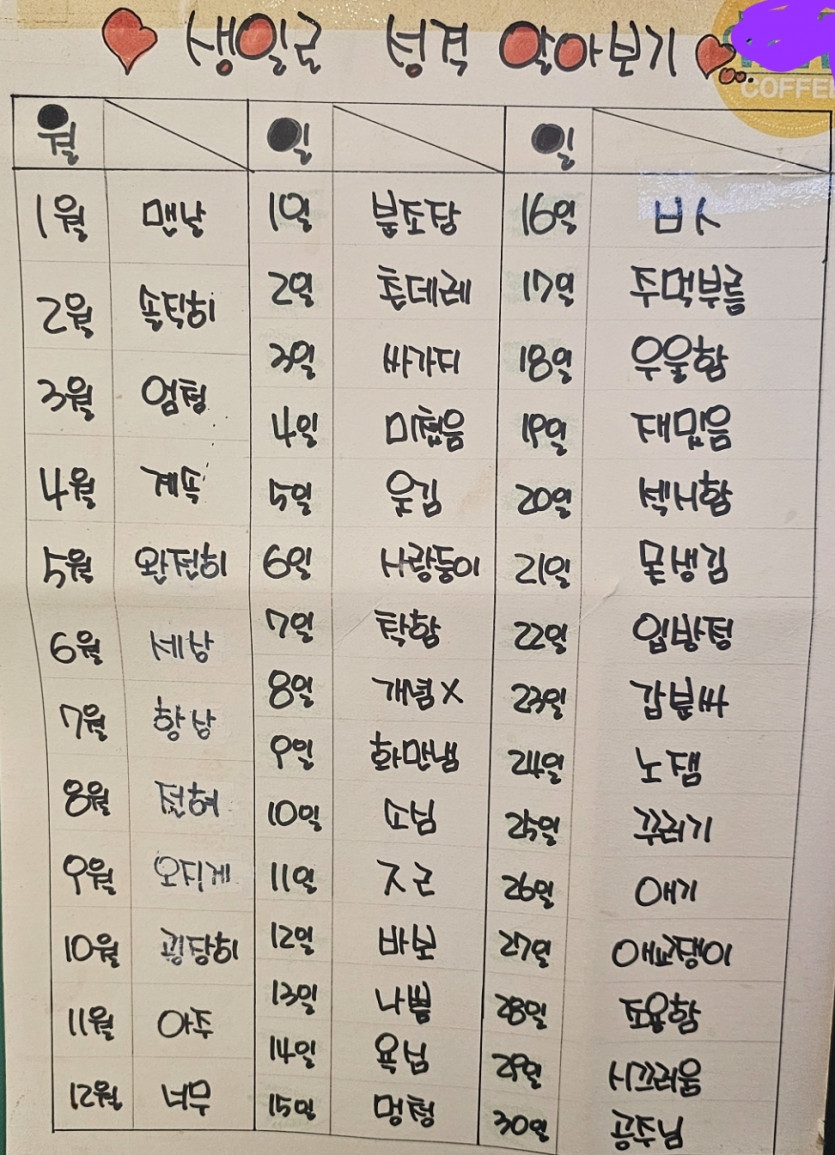 생일로 성격 알아보기
COFFEE
월
1월 맨날
2월 솔직히
3월 엄청
4월 계속
5월 완전히
6월 세상
7월 항상
8월 전혀
9월 오지게
10월 굉장히
11월 아주
12월 너무
일
1일 분조장
2일 츤데레
3일 싸가지
4일 미쳤음
5일 웃김
6일 사랑둥이
7일 착함
8일 개념X
9일 화만냄
10일 소심
11일 ㅈㄹ
12일 바보
13일 나쁨
14일 욕심
15일 멍청
일
16일 ㅂㅅ
17일 주먹부름
18일 우울함
19일 재밌음
20일 섹시함
21일 못생김
22일 입방정
23일 갑분싸
24일 노잼
25일 꾸러기
26일 애기
27일 애교쟁이
28일 조용함
29일 시끄러움
30일 공주님